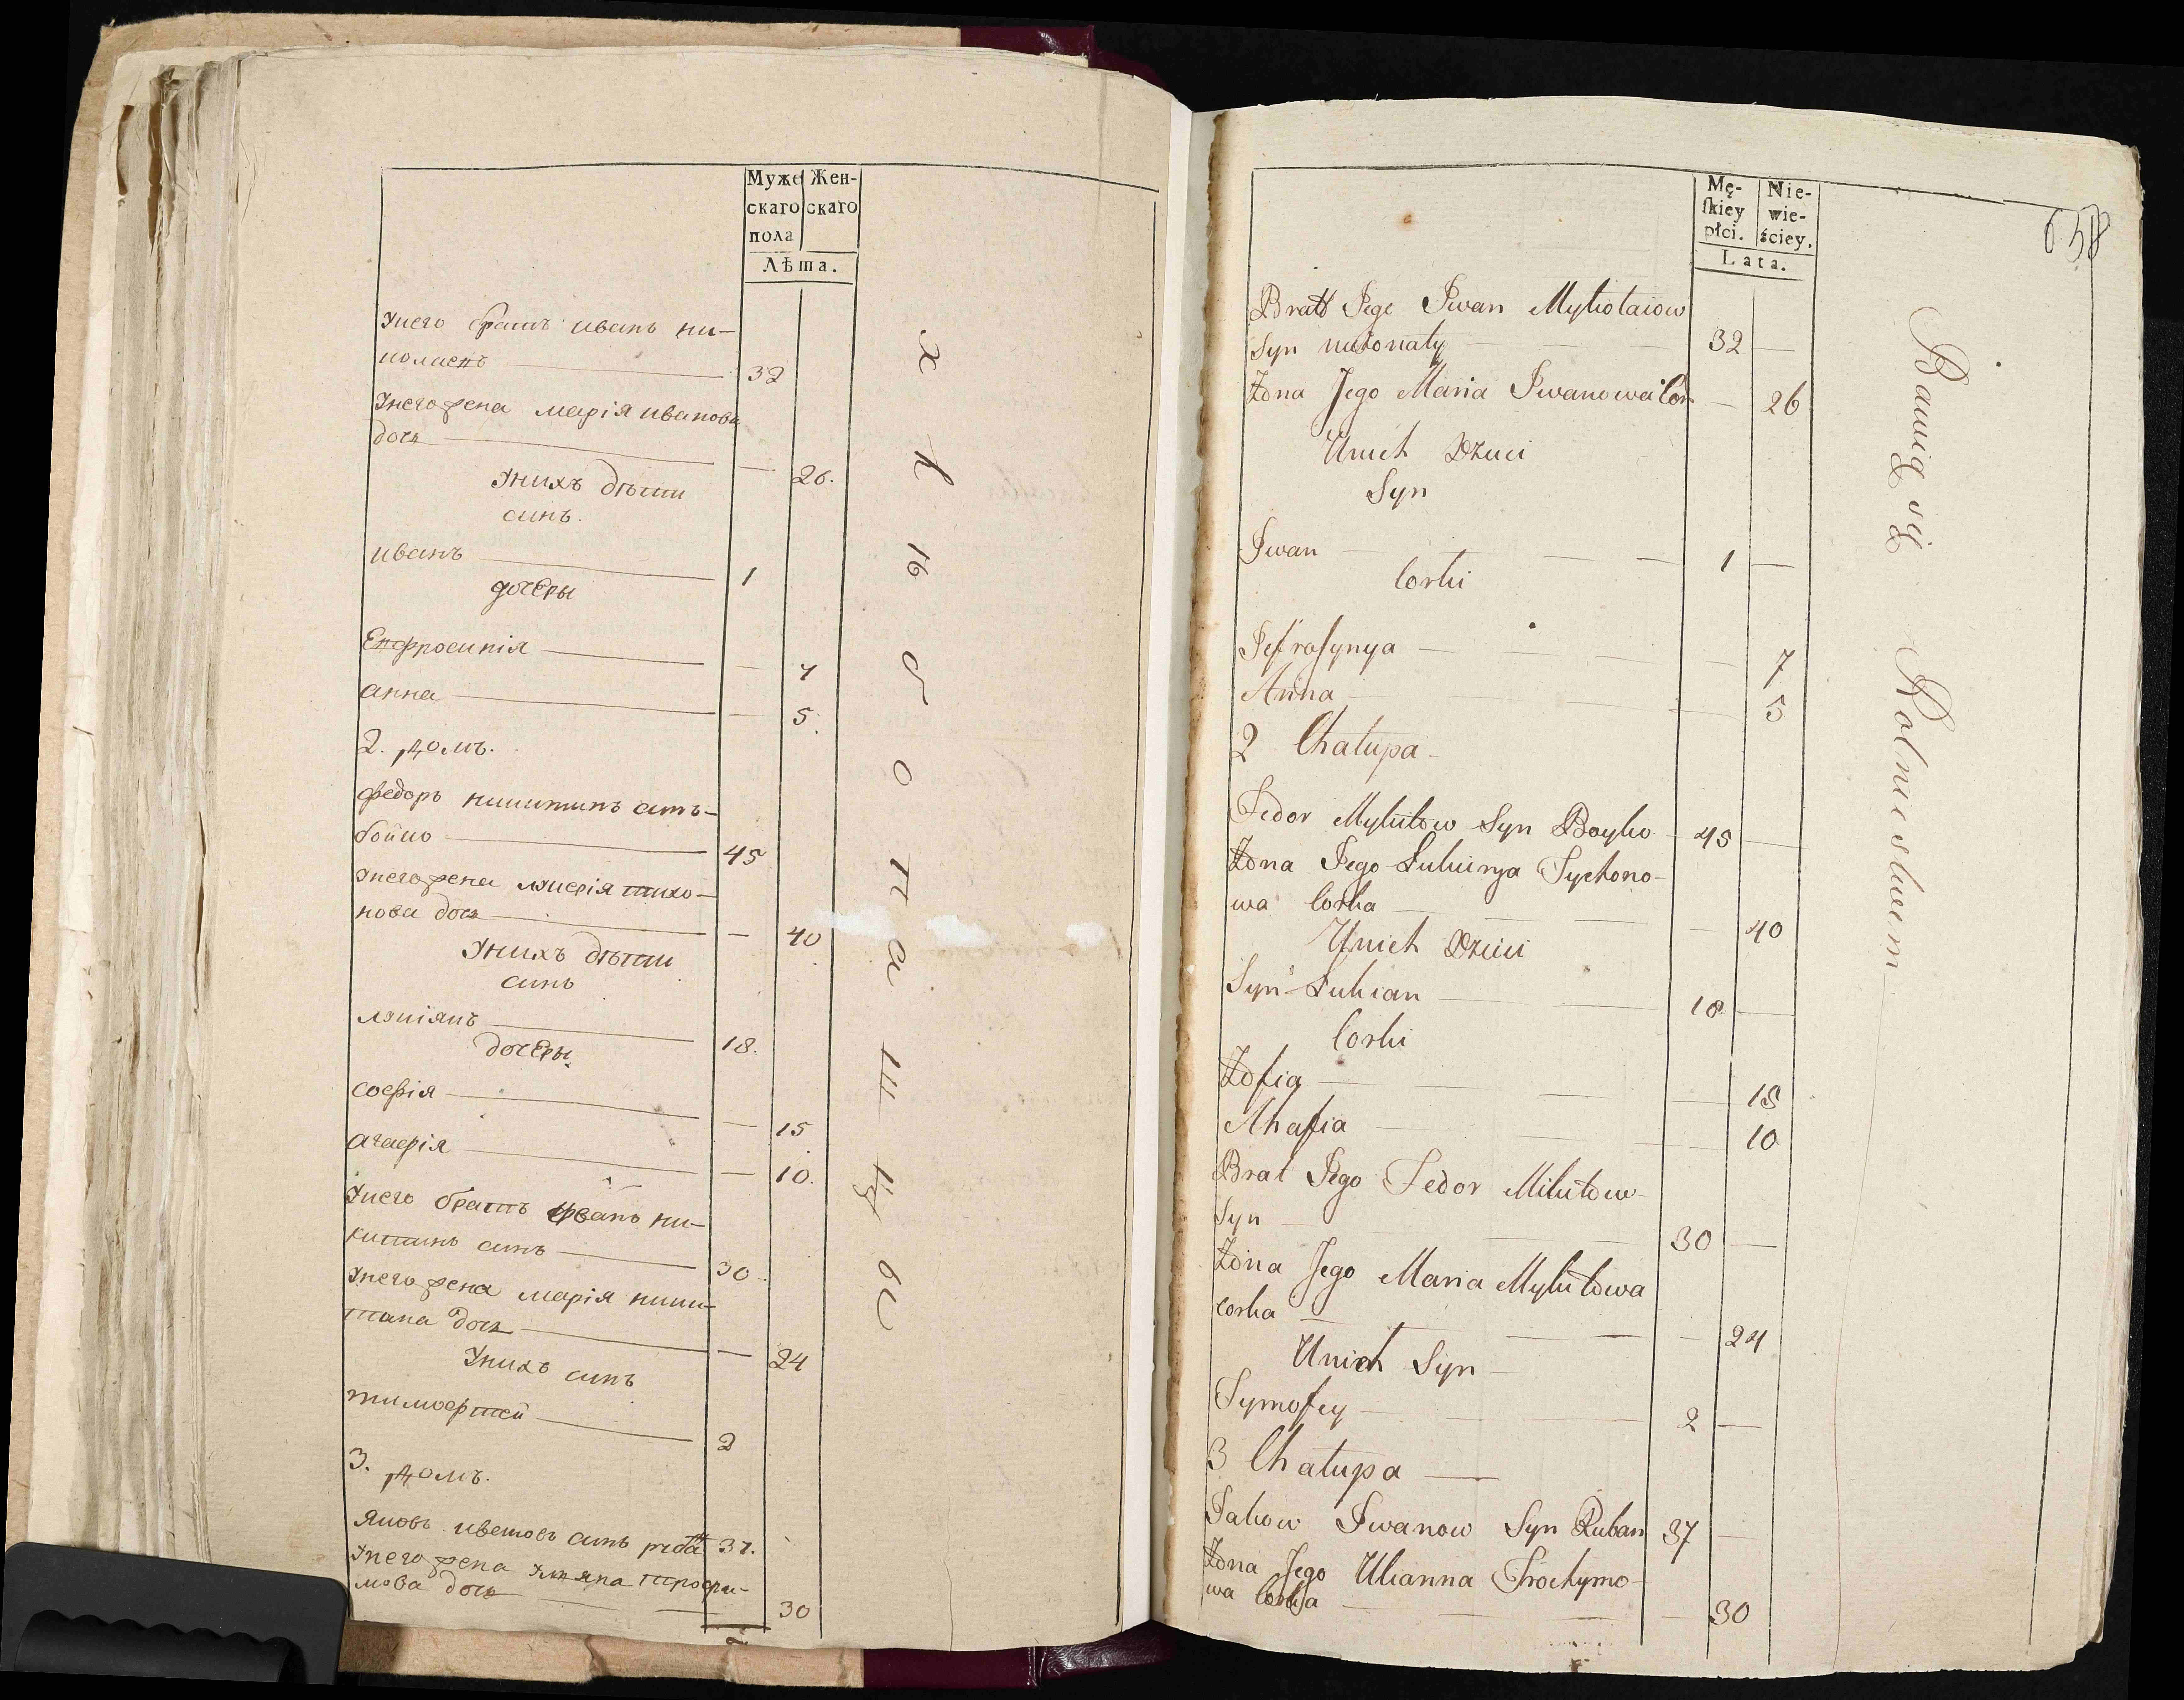 Муже Жен-
скаго скаго
пола
Лѣта.
Унего братъ иванъ ни-
колаевъ 32
Унего жена марія иванова
дочь — 26.
Унихъ дѣти
синъ.
иванъ 1
дочеры
Ефросинія — 7
анна — 5.
2. домъ.
федоръ никитинъ синъ
бойко 45
Унего жена лукерія тихо-
нова дочь — 40
Унихъ дѣти
синъ
лукіянъ 18.
дочеры
софія — 15
агафія — 10.
Унего братъ федоръ ни-
китинъ синъ 30
Унего жена марія ники-
тина дочь — 24
Унихъ синъ
тимофтей 2
3. домъ.
Яковъ ивановъ синъ 37.
Унего жена уляна трофи-
мова дочь 30
хлѣбопашцы
658
Mę- Nie-
skiey wie-
płci. ściey.
Lata.
Bratt Jego Iwan Mykołaiow
Syn 32 —
Żona Jego Maria Iwanowa Cór — 26
Unich Dzieci
Syn
Iwan 1 —
Corki
Jefrosynya — 7
Anna — 5
2 Chałupa
Fedor Mykitow Syn Boyko 45 —
Żona Jego Łukierya Tychono-
wa Corka — 40
Unich Dzieci
Syn Łukian 18 —
Corki
Zofia — 15
Ahafia — 10
Brat Jego Fedor Mikitow
Syn 30 —
Żona Jego Maria Mykitowa
corka — 24
Unich Syn
Tymofey 2 —
3 Chałupa
Jakow Iwanow Syn Ruban 37 —
Żona Jego Ulianna Trochymo-
wa Corka — 30
Bawią się Rolnictwem